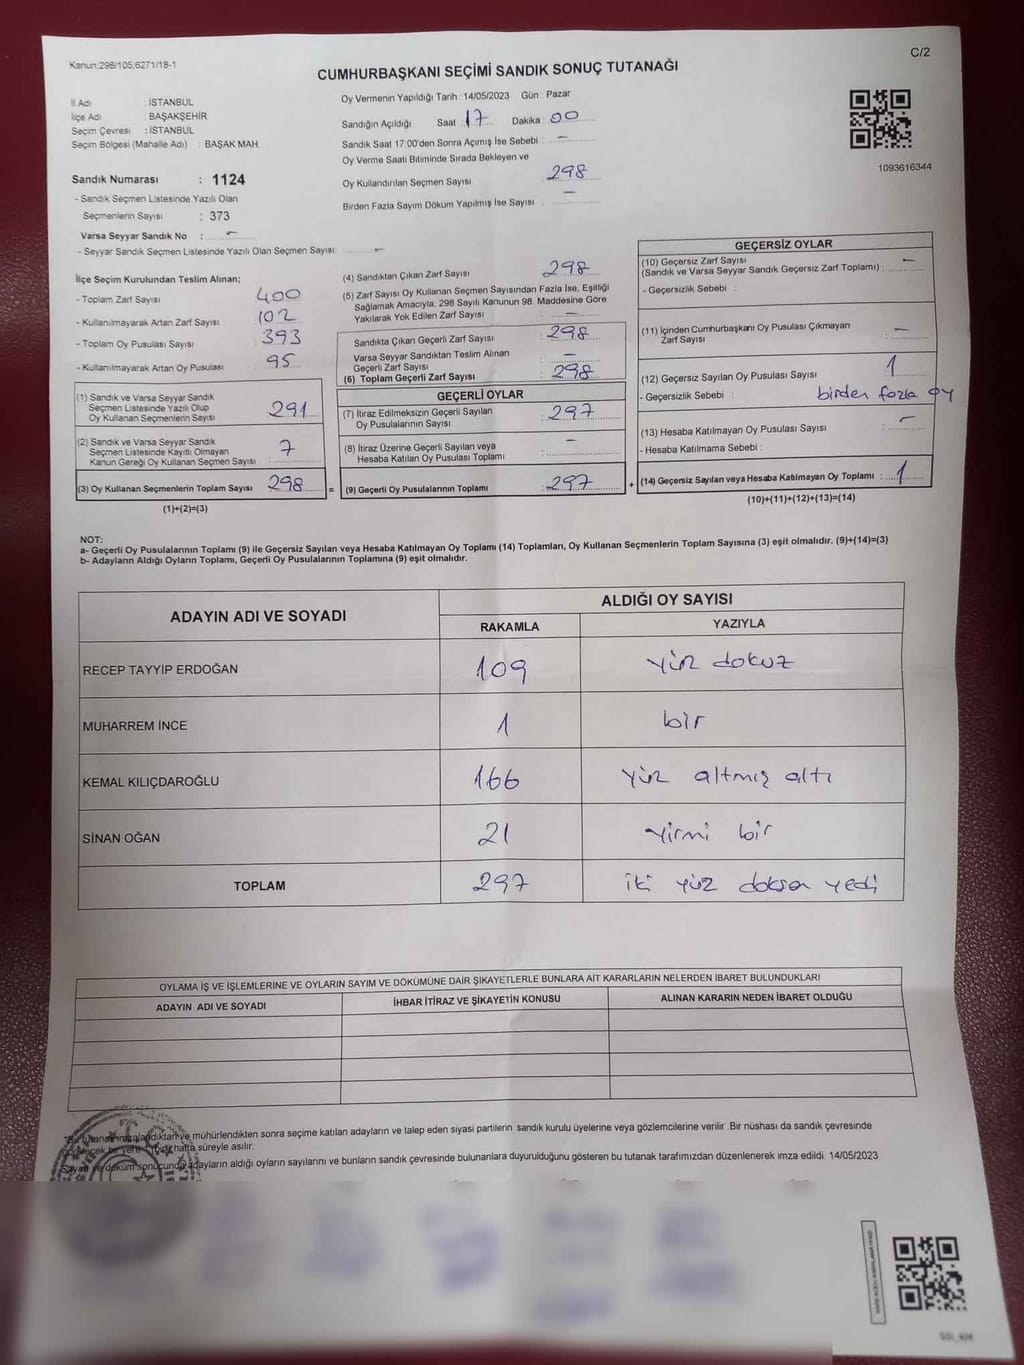 Kanun,298/105,6271/18-1
C/2
CUMHURBAŞKANI SEÇİMİ SANDIK SONUÇ TUTANAĞI
İl Adı : İSTANBUL
İlçe Adı : BAŞAKŞEHİR
Seçim Çevresi : İSTANBUL
Seçim Bölgesi (Mahalle Adı) : BAŞAK MAH.
Oy Vermenin Yapıldığı Tarih : 14/05/2023 Gün : Pazar
Sandığın Açıldığı Saat : 17 Dakika : 00
Sandık Saat 17:00'den Sonra Açılmış İse Sebebi : –
Oy Verme Saati Bitiminde Sırada Bekleyen ve
Oy Kullandırılan Seçmen Sayısı 298
Birden Fazla Sayım Döküm Yapılmış İse Sayısı : –
1093616344
Sandık Numarası : 1124
- Sandık Seçmen Listesinde Yazılı Olan
Seçmenlerin Sayısı : 373
Varsa Seyyar Sandık No : –
- Seyyar Sandık Seçmen Listesinde Yazılı Olan Seçmen Sayısı: –
İlçe Seçim Kurulundan Teslim Alınan;
- Toplam Zarf Sayısı 400
- Kullanılmayarak Artan Zarf Sayısı 102
- Toplam Oy Pusulası Sayısı 393
- Kullanılmayarak Artan Oy Pusulası 95
(1) Sandık ve Varsa Seyyar Sandık
Seçmen Listesinde Yazılı Olup
Oy Kullanan Seçmenlerin Sayısı 291
(2) Sandık ve Varsa Seyyar Sandık
Seçmen Listesinde Kayıtlı Olmayan
Kanun Gereği Oy Kullanan Seçmen Sayısı : 7
(3) Oy Kullanan Seçmenlerin Toplam Sayısı 298
(1)+(2)=(3)
(4) Sandıktan Çıkan Zarf Sayısı 298
(5) Zarf Sayısı Oy Kullanan Seçmen Sayısından Fazla İse, Eşitliği
Sağlamak Amacıyla; 298 Sayılı Kanunun 98. Maddesine Göre
Yakılarak Yok Edilen Zarf Sayısı : –
Sandıkta Çıkan Geçerli Zarf Sayısı : 298
Varsa Seyyar Sandıktan Teslim Alınan
Geçerli Zarf Sayısı –
(6) Toplam Geçerli Zarf Sayısı : 298
GEÇERLİ OYLAR
(7) İtiraz Edilmeksizin Geçerli Sayılan
Oy Pusulalarının Sayısı : 297
(8) İtiraz Üzerine Geçerli Sayılan veya
Hesaba Katılan Oy Pusulası Toplamı : –
=
(9) Geçerli Oy Pusulalarının Toplamı : 297
+
GEÇERSİZ OYLAR
(10) Geçersiz Zarf Sayısı
(Sandık ve Varsa Seyyar Sandık Geçersiz Zarf Toplamı) : –
- Geçersizlik Sebebi :
(11) İçinden Cumhurbaşkanı Oy Pusulası Çıkmayan
Zarf Sayısı : –
(12) Geçersiz Sayılan Oy Pusulası Sayısı : 1
- Geçersizlik Sebebi : birden fazla oy
(13) Hesaba Katılmayan Oy Pusulası Sayısı : –
- Hesaba Katılmama Sebebi :
(14) Geçersiz Sayılan veya Hesaba Katılmayan Oy Toplamı : 1
(10)+(11)+(12)+(13)=(14)
NOT:
a- Geçerli Oy Pusulalarının Toplamı (9) ile Geçersiz Sayılan veya Hesaba Katılmayan Oy Toplamı (14) Toplamları, Oy Kullanan Seçmenlerin Toplam Sayısına (3) eşit olmalıdır. (9)+(14)=(3)
b- Adayların Aldığı Oyların Toplamı, Geçerli Oy Pusulalarının Toplamına (9) eşit olmalıdır.
ADAYIN ADI VE SOYADI
ALDIĞI OY SAYISI
RAKAMLA YAZIYLA
RECEP TAYYİP ERDOĞAN 109 yüz dokuz
MUHARREM İNCE 1 bir
KEMAL KILIÇDAROĞLU 166 yüz altmış altı
SİNAN OĞAN 21 yirmi bir
TOPLAM 297 iki yüz doksan yedi
OYLAMA İŞ VE İŞLEMLERİNE VE OYLARIN SAYIM VE DÖKÜMÜNE DAİR ŞİKAYETLERLE BUNLARA AİT KARARLARIN NELERDEN İBARET BULUNDUKLARI
ADAYIN ADI VE SOYADI İHBAR İTİRAZ VE ŞİKAYETİN KONUSU ALINAN KARARIN NEDEN İBARET OLDUĞU
mühürlendikten sonra seçime katılan adayların ve talep eden siyasi partilerin sandık kurulu üyelerine veya gözlemcilerine verilir .Bir nüshası da sandık çevresinde
hafta süreyle asılır.
döküm sonucunda adayların aldığı oyların sayılarını ve bunların sandık çevresinde bulunanlara duyurulduğunu gösteren bu tutanak tarafımızdan düzenlenerek imza edildi. 14/05/2023